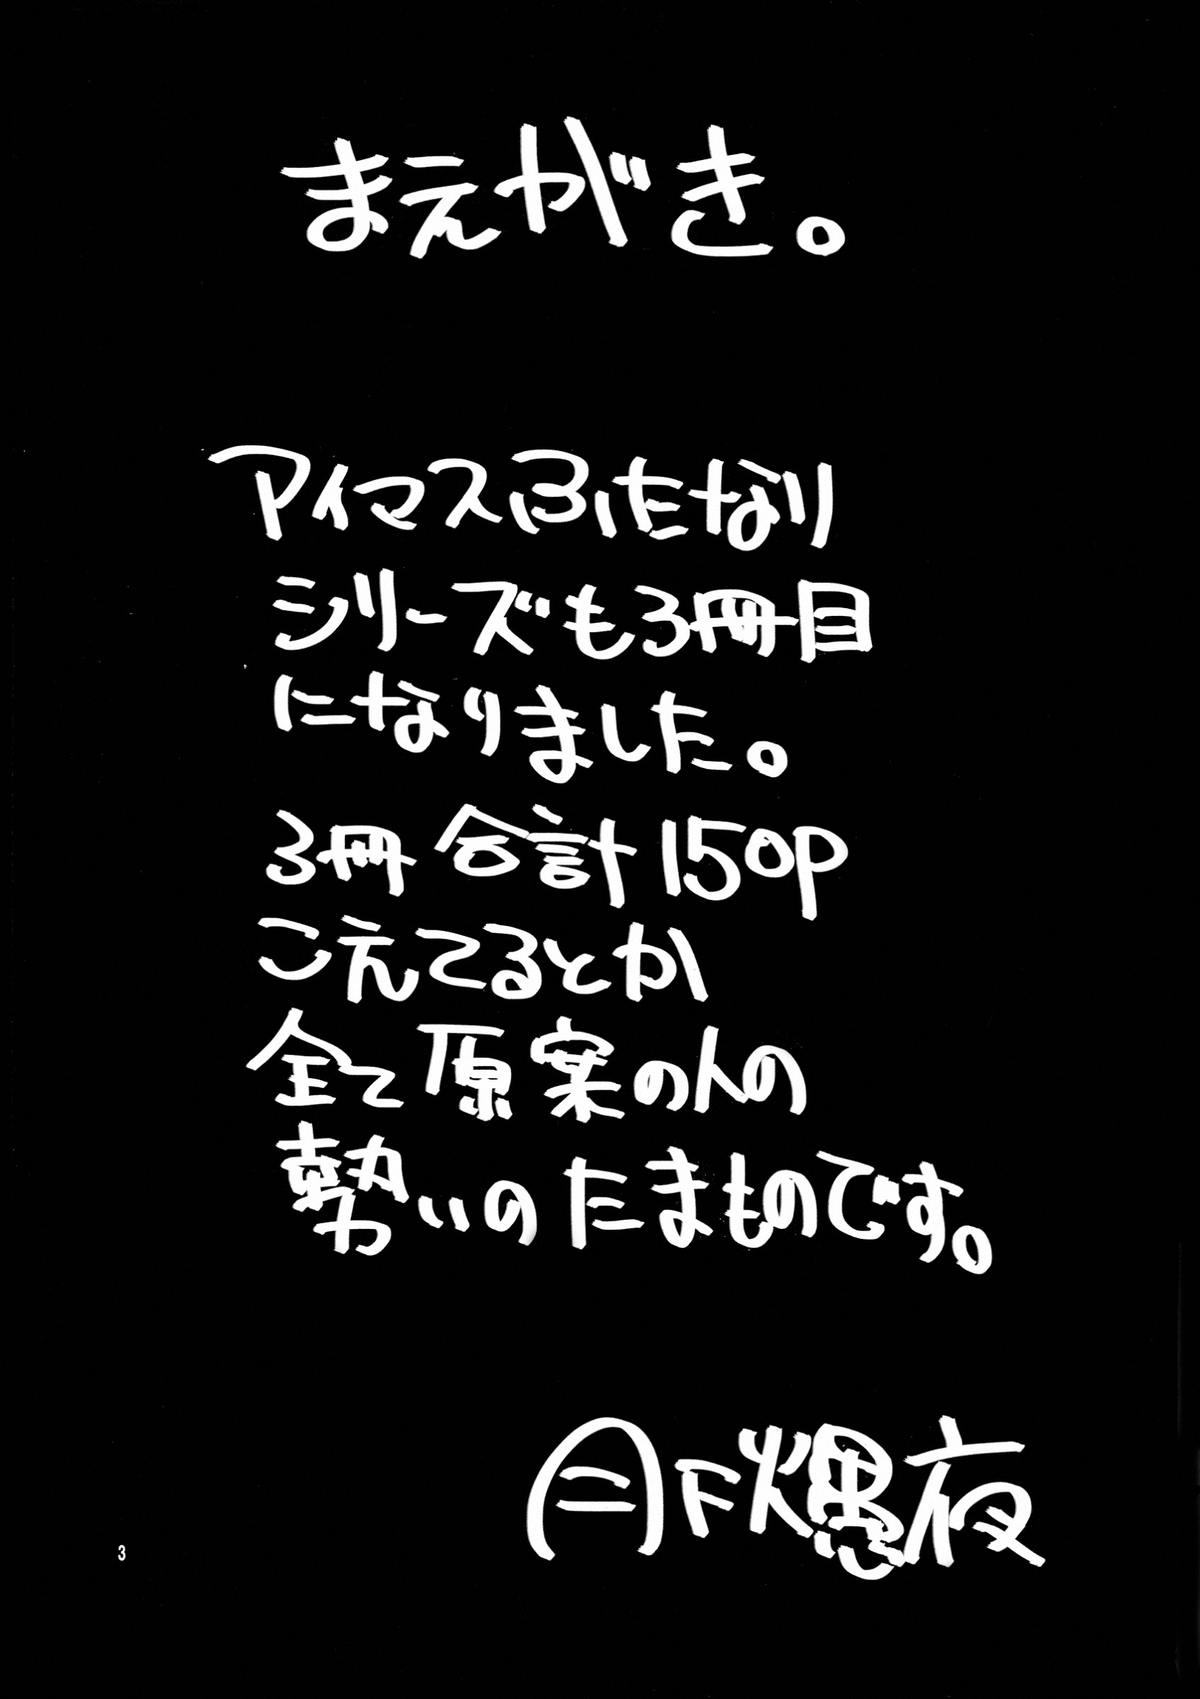 まえがき。
アイマスふたなり
シリーズも3冊目
になりました。
3冊 合計150P
こえてるとか
全て原案の人の
勢いのたまものです。
月下 夜
3